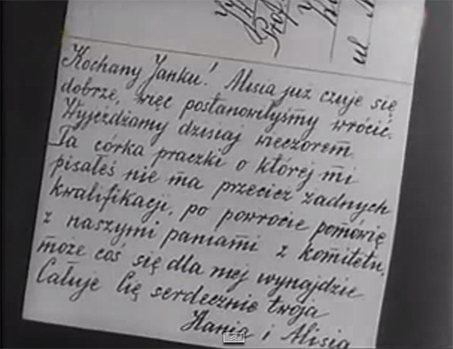 Kochany Janku! Alisia już czuje się
dobrze, więc postanowiłyśmy wrócić.
Wyjeżdżamy dzisiaj wieczorem.
Ta córka praczki o której mi
pisałeś nie ma przecież żadnych
kwalifikacji, po powrocie pomówię
z naszymi paniami z komitetu,
może coś się dla niej wynajdzie
Całuję Cię serdecznie twoja
Hania i Alisia